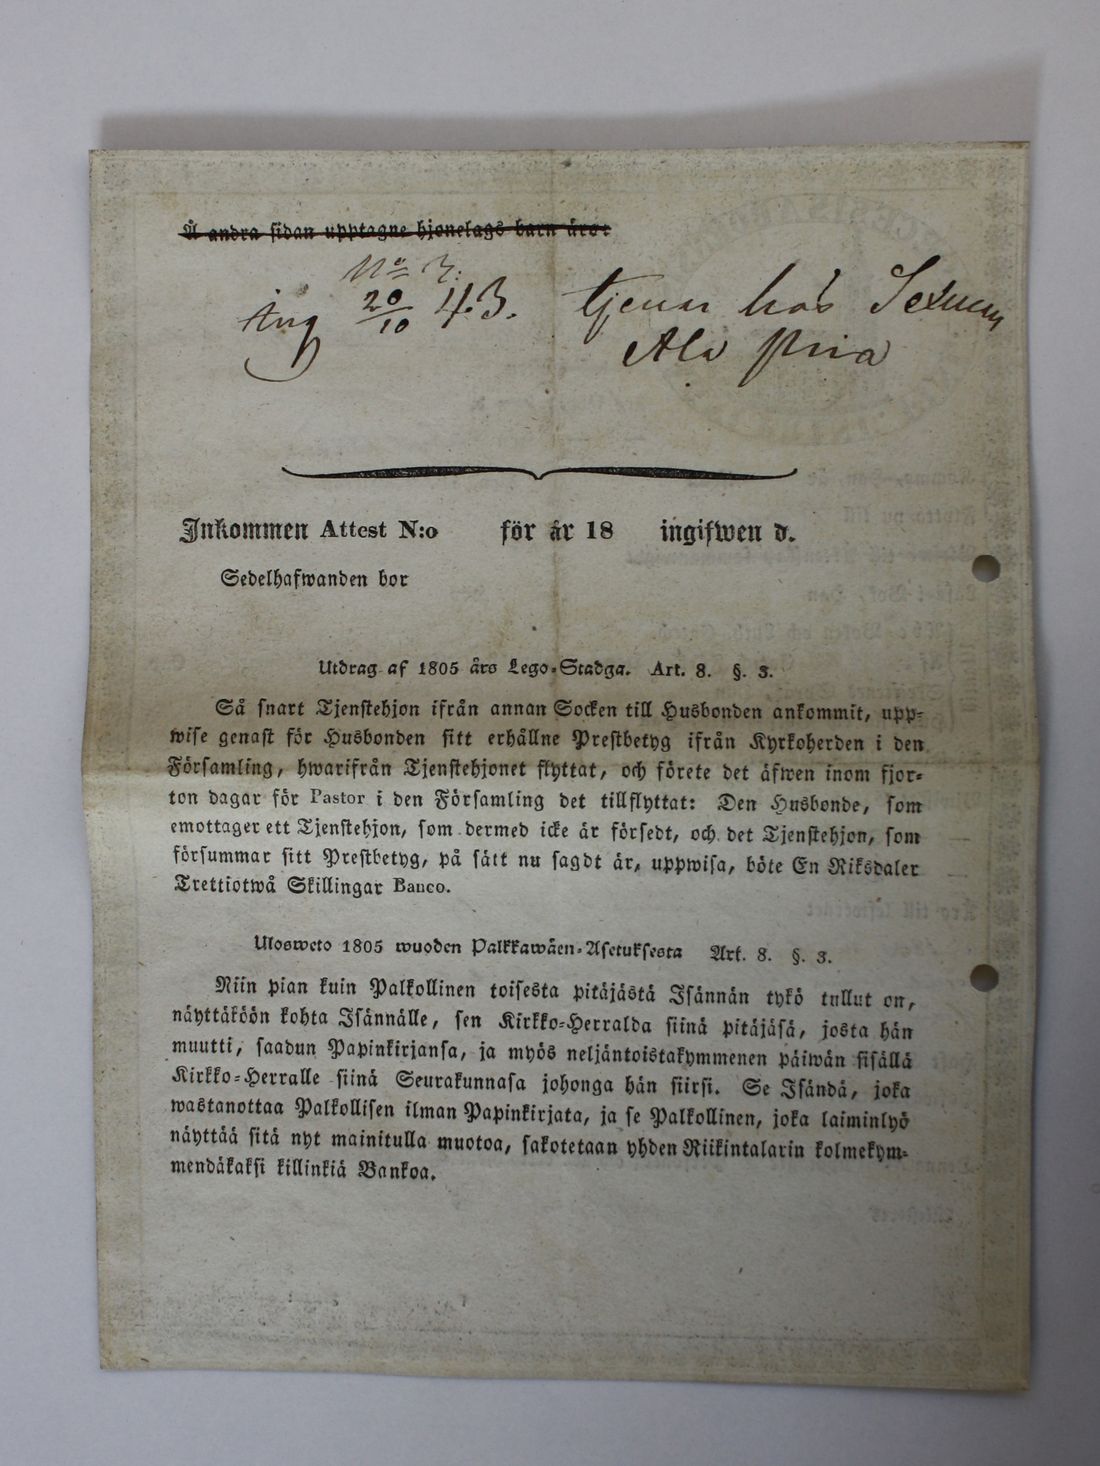 Å andra sidan upptagne hjonelags barn äro:
No 3.
ing 20/10 43. tjenar hos
Inkommen Attest N:o för år 18 ingifwen d.
Sedelhafwanden bor
Utdrag af 1805 års Lego-Stadga. Art. 8. §. 3.
Så snart Tjenstehjon ifrån annan Socken till Husbonden ankommit, upp-
wise genast för Husbonden sitt erhållne Prestbetyg ifrån Kyrkoherden i den
Församling, hwarifrån Tjenstehjonet flyttat, och förete det äfwen inom fjor-
ton dagar för Pastor i den Församling det tillflyttat: Den Husbonde, som
emottager ett Tjenstehjon, som dermed icke är försedt, och det Tjenstehjon, som
försummar sitt Prestbetyg, på sätt nu sagdt är, uppwisa, böte En Riksdaler
Trettiotwå Skillingar Banco.
Ulosweto 1805 wuoden Palkkawäen-Asetuksesta Art. 8. §. 3.
Niin pian kuin Palkollinen toisesta pitäjästä Isännän tykö tullut on,
näyttäköön kohta Isännälle, sen Kirkko-Herralda siinä pitäjäsä, josta hän
muutti, saadun Papinkirjansa, ja myös neljäntoistakymmenen päiwän sisällä
Kirkko-Herralle siinä Seurakunnasa johonga hän siirsi. Se Isändä, joka
wastanottaa Palkollisen ilman Papinkirjata, ja se Palkollinen, joka laiminlyö
näyttää sitä nyt mainitulla muotoa, sakotetaan yhden Riikintalarin kolmekym-
mendäkaksi killinkiä Bankoa.